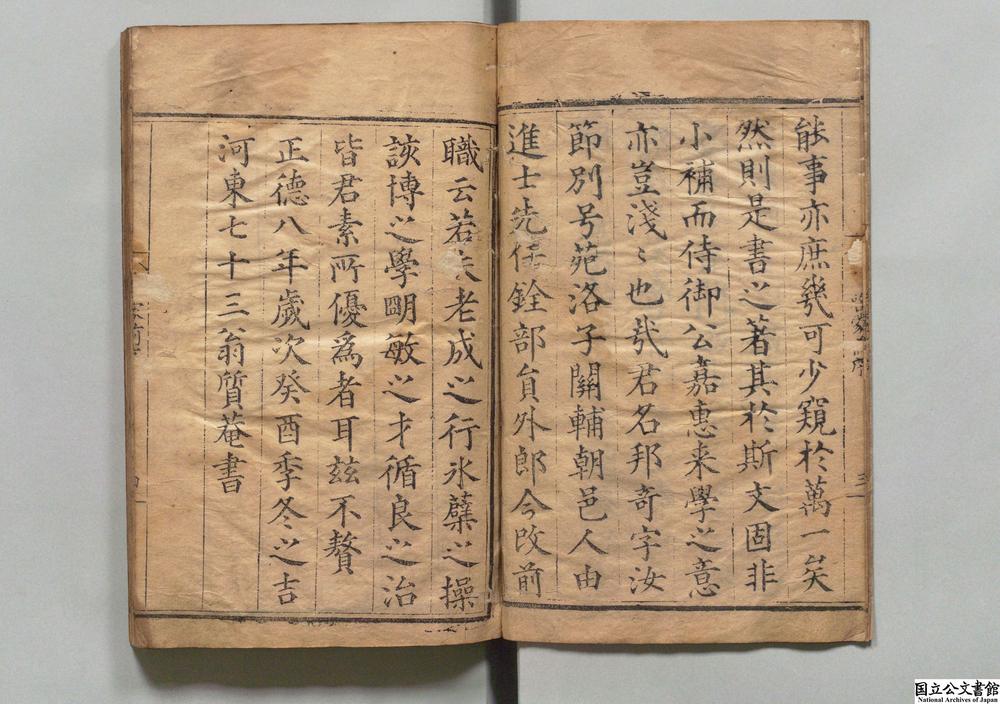 能事亦庶幾可少窺於萬一矣
然則是書之著其於斯文固非
小補而待御公嘉惠来學之意
亦豈淺〻也㢤君名邦奇字汝
節別号苑洛子關輔朝邑人由
進士先任銓部貟外郎今改前
職云若夫老成之行氷蘖之操
該博之學明敏之才循良之治
皆君素所優為者耳兹不贅
正德八年歲次癸酉季冬之吉
河東七十三翁質菴書
三
国立公文書館
National Archives of Japan